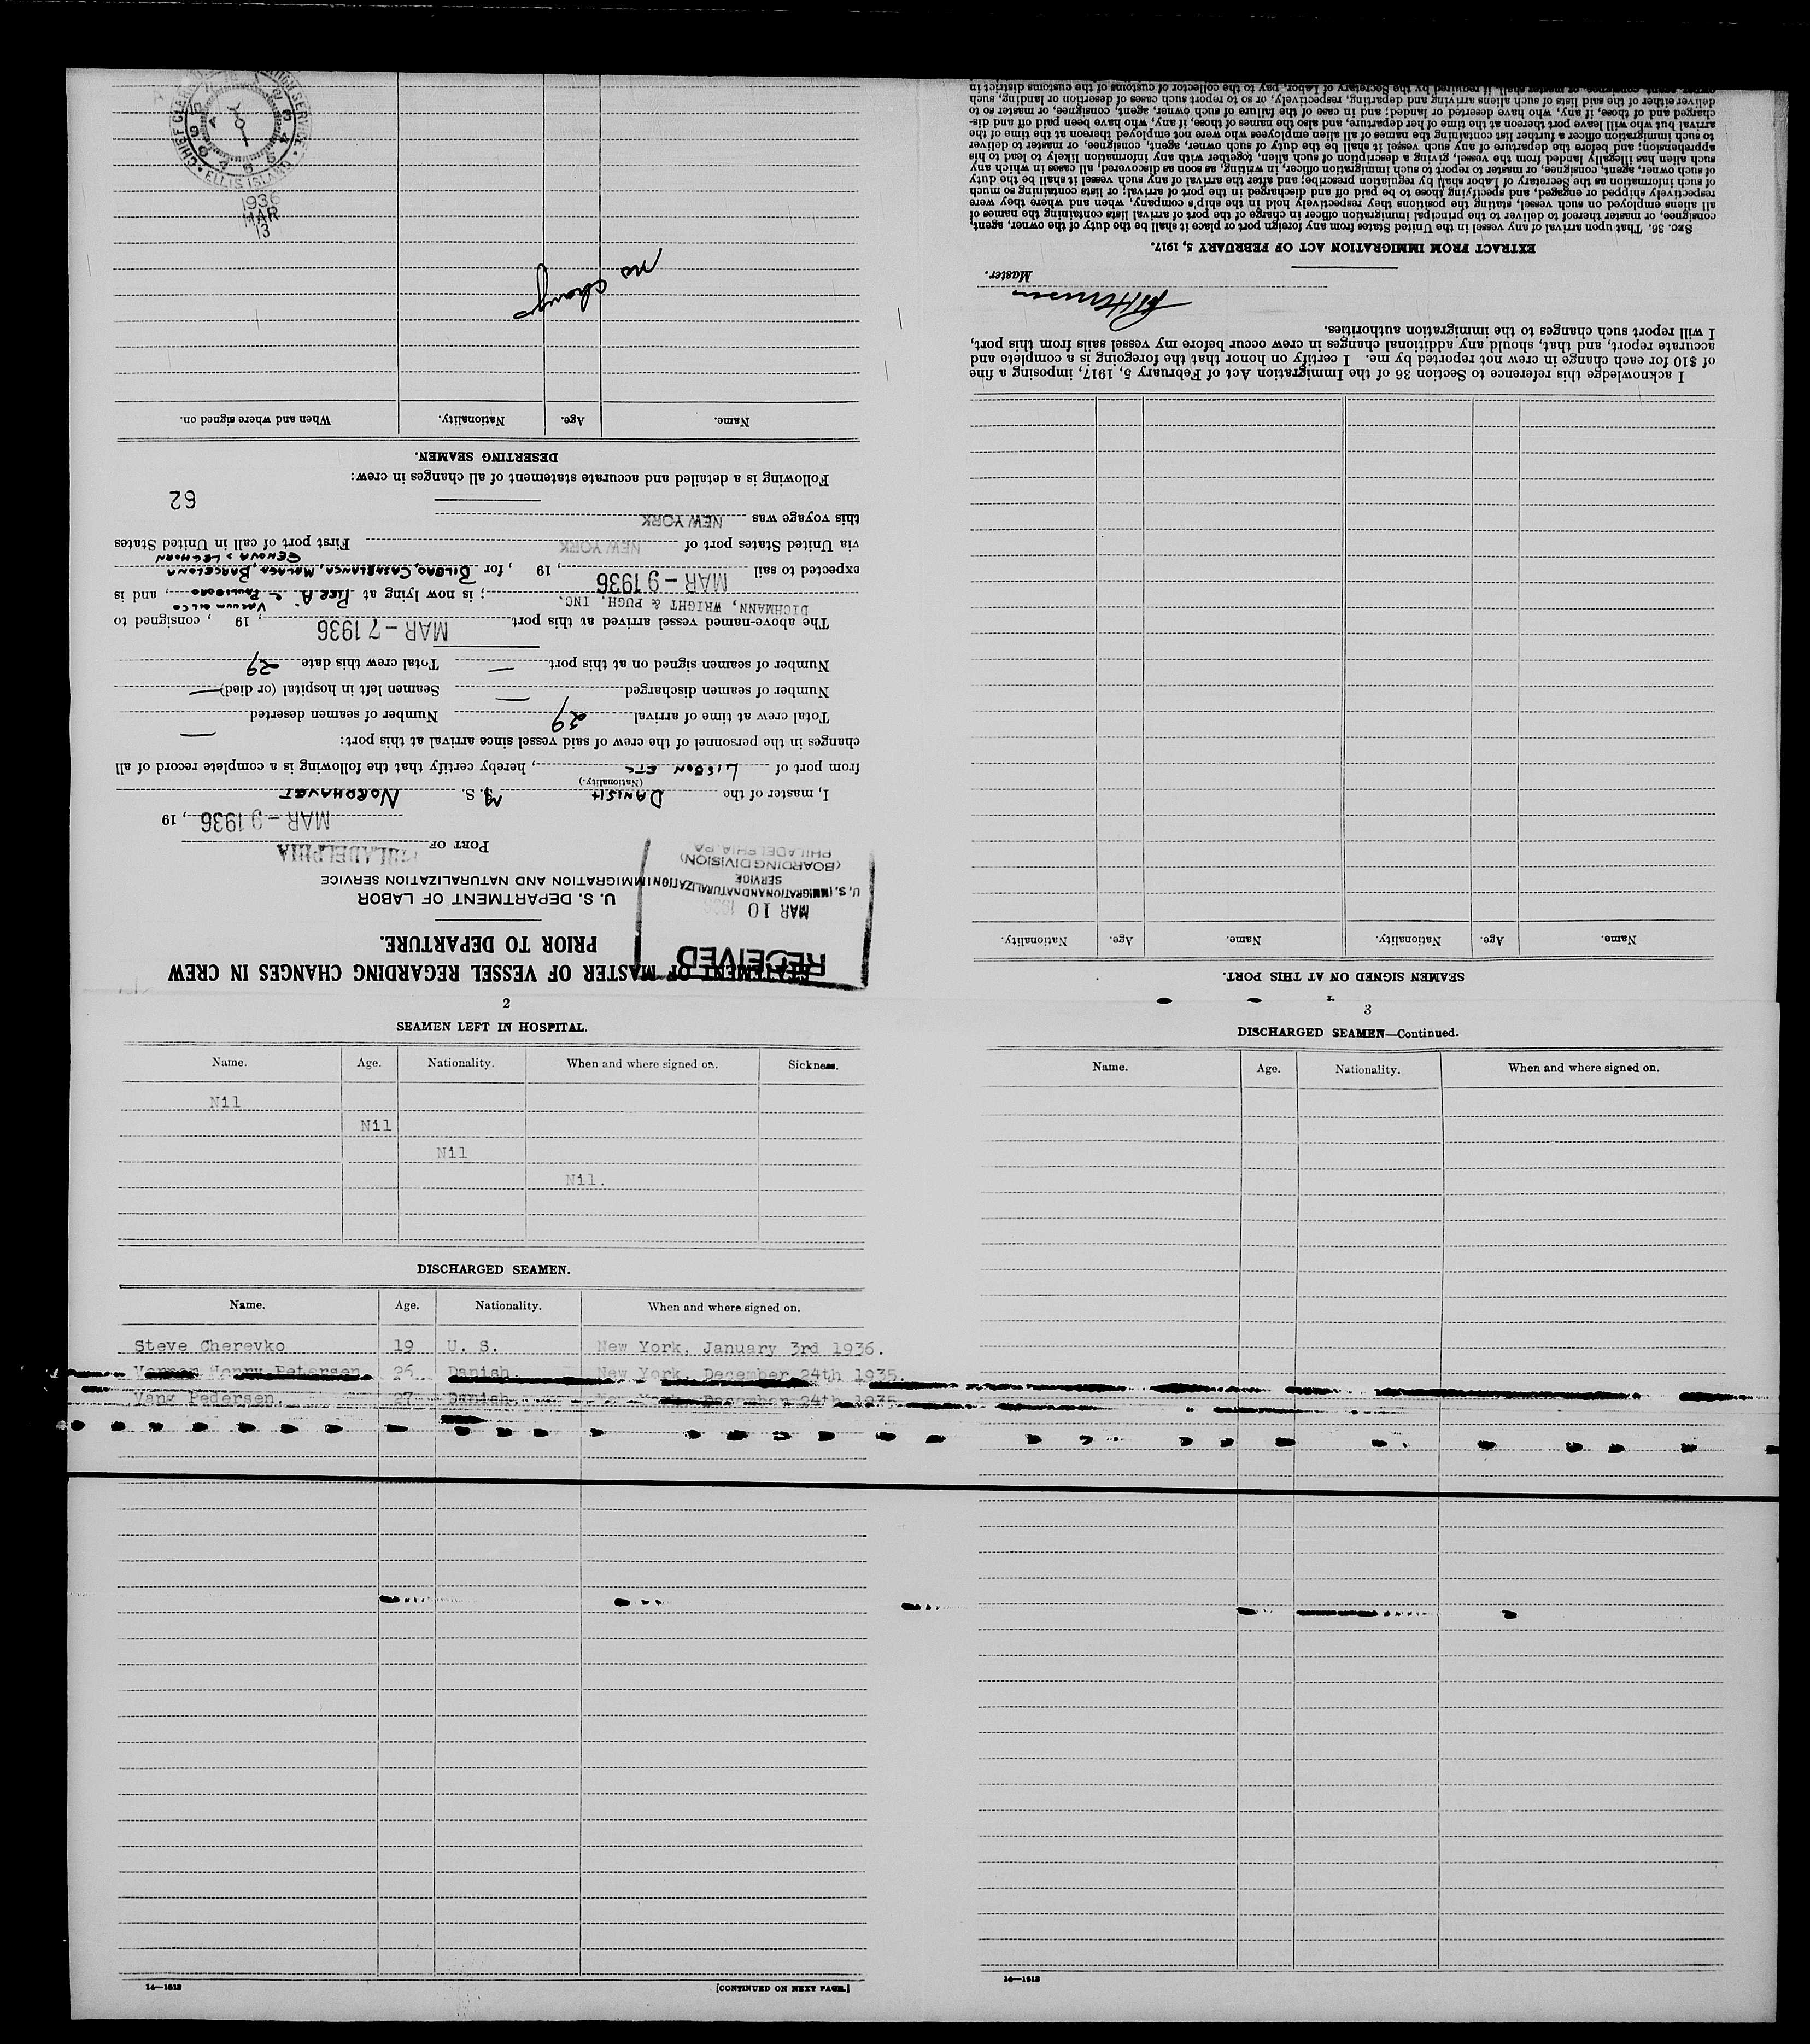 STATEMENT OF MASTER OF VESSEL REGARDING CHANGES IN CREW
PRIOR TO DEPARTURE.
RECEIVED
MAR 10
U. S. IMMIGRATION AND NATURALIZATION
SERVICE
(BOARDING DIVISION)
PHILADELPHIA, PA
U. S. DEPARTMENT OF LABOR
IMMIGRATION AND NATURALIZATION SERVICE
PORT OF PHILADELPHIA
MAR - 9 1936, 19
I, master of the DANISH M. S. NORDHAVET
(Nationality.)
from port of LISBON ETC, hereby certify that the following is a complete record of all
changes in the personnel of the crew of said vessel since arrival at this port:
Total crew at time of arrival 29 Number of seamen deserted —
Number of seamen discharged — Seamen left in hospital (or died) —
Number of seamen signed on at this port — Total crew this date 29
The above-named vessel arrived at this port MAR - 7 1936, 19 , consigned to
DICHMANN, WRIGHT & PUGH, INC. VACUUM OIL CO
; is now lying at PIER A. - PAULSBORO, and is
expected to sail MAR - 9 1936, 19 , for BILBAO, CASABLANCA, MALAGA, BARCELONA
GENOVA > LEGHORN
via United States port of NEW YORK First port of call in United States
this voyage was NEW YORK
62
Following is a detailed and accurate statement of all changes in crew:
DESERTING SEAMEN.
Name. Age. Nationality. When and where signed on.
no change
13
MAR
1936
CHIEF CLERK
ELLIS ISLAND
SEAMEN SIGNED ON AT THIS PORT.
Name. Age. Nationality. Name. Age. Nationality.
I acknowledge this reference to Section 36 of the Immigration Act of February 5, 1917, imposing a fine
of $10 for each change in crew not reported by me. I certify on honor that the foregoing is a complete and
accurate report, and that, should any additional changes in crew occur before my vessel sails from this port,
I will report such changes to the immigration authorities.
Master.
EXTRACT FROM IMMIGRATION ACT OF FEBRUARY 5, 1917.
SEC. 36. That upon arrival of any vessel in the United States from any foreign port or place it shall be the duty of the owner, agent,
consignee, or master thereof to deliver to the principal immigration officer in charge of the port of arrival lists containing the names of
all aliens employed on such vessel, stating the positions they respectively hold in the ship's company, when and where they were
respectively shipped or engaged, and specifying those to be paid off and discharged in the port of arrival; or lists containing so much
of such information as the Secretary of Labor shall by regulation prescribe; and after the arrival of any such vessel it shall be the duty
of such owner, agent, consignee, or master to report to such immigration officer, in writing, as soon as discovered, all cases in which any
such alien has illegally landed from the vessel, giving a description of such alien, together with any information likely to lead to his
apprehension; and before the departure of any such vessel it shall be the duty of such owner, agent, consignee, or master to deliver
to such immigration officer a further list containing the names of all alien employees who were not employed thereon at the time of the
arrival but who will leave port thereon at the time of her departure, and also the names of those, if any, who have been paid off and dis-
charged and of those, if any, who have deserted or landed; and in case of the failure of such owner, agent, consignee, or master so to
deliver either of the said lists of such aliens arriving and departing, respectively, or so to report such cases of desertion or landing, such
owner, agent, consignee, or master shall, if required by the Secretary of Labor, pay to the collector of customs of the customs district in
2
SEAMEN LEFT IN HOSPITAL.
Name. Age. Nationality. When and where signed on. Sickness.
Nil
Nil
Nil
Nil.
DISCHARGED SEAMEN.
Name. Age. Nationality. When and where signed on.
Steve Cherevko 19 U. S. New York, January 3rd 1936.
Henry Petersen 26. Danish. New York, December 24th 1935.
Vang Pedersen. 27. Danish. December 24th 1935
14—1613
[CONTINUED ON NEXT PAGE.]
3
DISCHARGED SEAMEN—Continued.
Name. Age. Nationality. When and where signed on.
14—1613